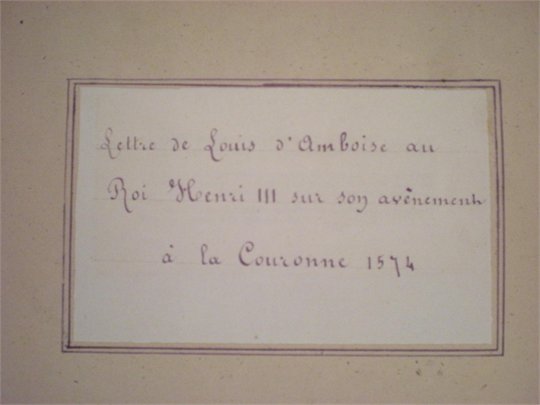 Lettre de Louis d'Amboise au
Roi Henri III sur son avênement
à la Couronne 1574